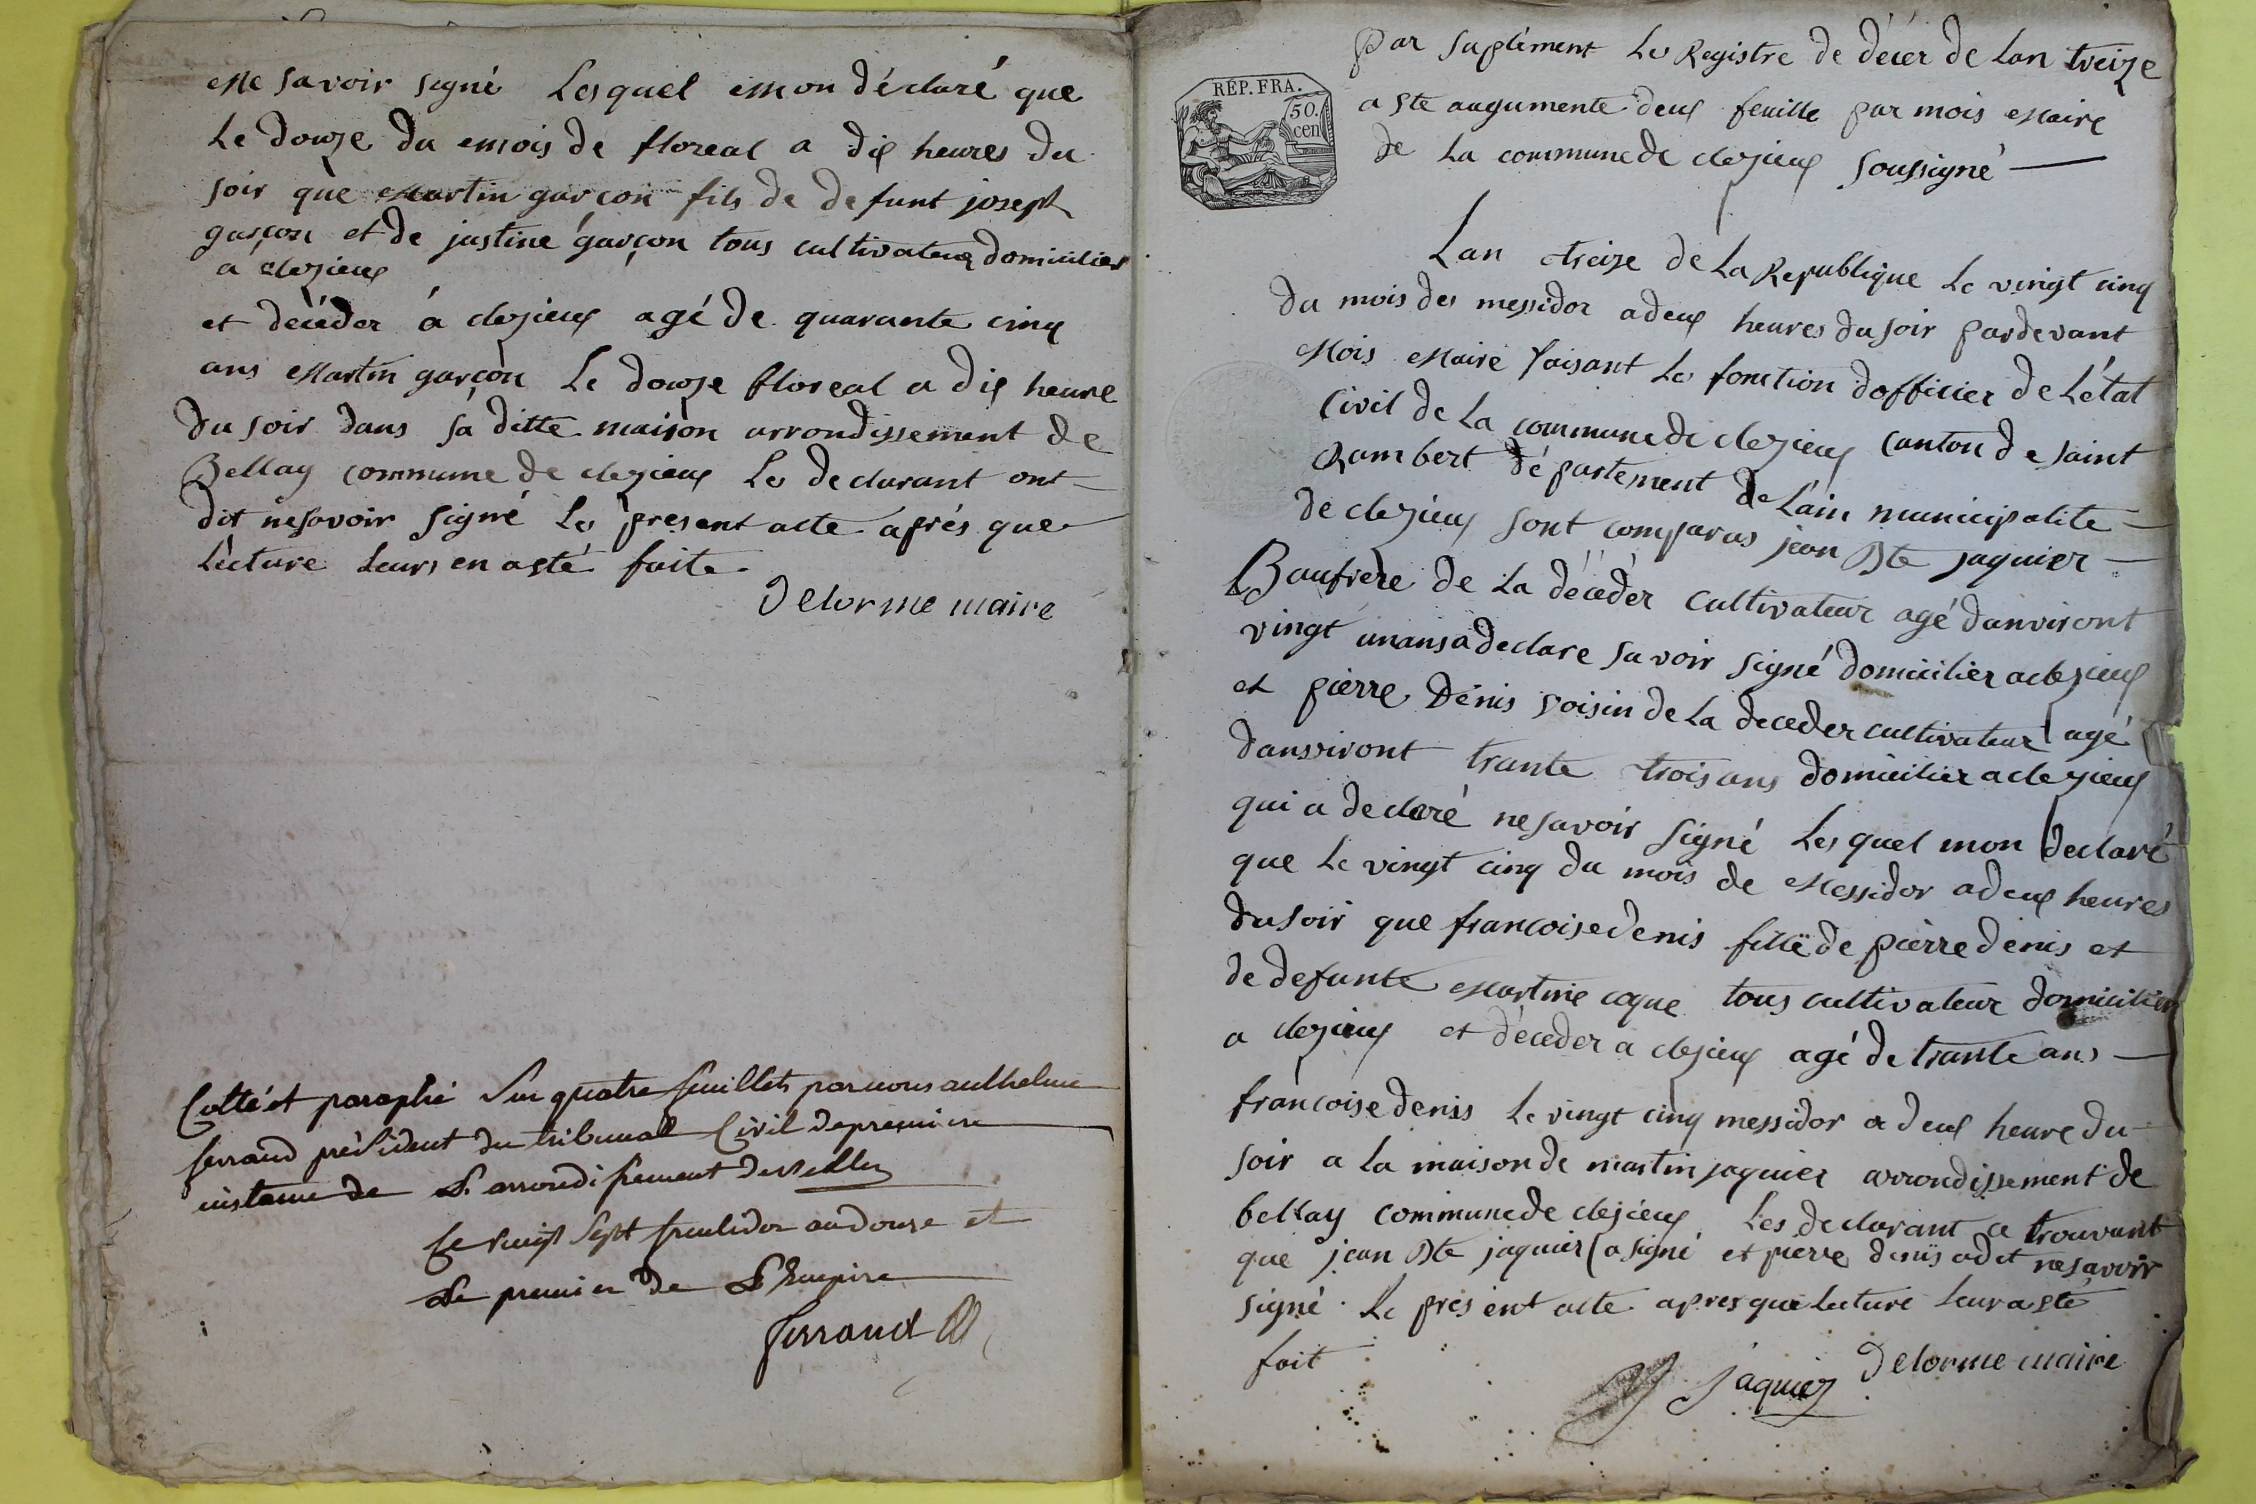 ne savoir signé Lesquel mon déclaré que
Le douze du mois de floreal a dix heures du
soir que martin garçon fils de defunt joseph
garçon et de justine garçon tous cultivateur domicilier
a clezieux
et décéder á clezieux agé de quarante cinq
ans martin garçon Le douze floreal a dix heure
du soir dans sa ditte maison arrondissement de
Bellay commune de clezieux Les declarant ont
dit ne savoir signé Les present acte aprés que
Lecture Leurs en a eté faite
Delorme maire
Cotté et paraphé Sur quatre feuillets par nous anthelme
ferrand président du tribunal Civil de premiere
instance de L'arrondissement de Belley
Le vingt Sept fructidor an douze et
Le premier de L'Empire
ferrand
RÉP. FRA.
50. cen
par suplément Les Registre de décér de Lan treize
a ete augumente deux feuille par mois maire
de La commune de clezieux soussigné
Lan treize de La Republique Le vingt cinq
du mois des messidor a deux heures du soir pardevant
Mois maire faisant Les fonction dofficier de Létat
Civil de La commune de clezieux canton de saint
Rambert département de Lain municipalite
de clezieux sont comparus jean Bte jaquier
Baufrere de La décéder cultivateur agé danviront
vingt un ans a declare savoir signé domicilier a clezieux
et pierre Denis voisin de La deceder cultivateur agé
danviront trante trois ans domicilier a clezieux
qui a declaré ne savoir signé Lesquel mon declaré
que Le vingt cinq du mois de Messidor a deux heures
du soir que francoise denis fille de pierre denis et
de defunte martine coque tous cultivateur domicilier
a clezieux et décéder a clezieux agé de trante ans
francoise denis Le vingt cinq messidor a deux heure du
soir a la maison de martin jaquier arrondissement de
bellay commune de clejieux Les declarant ce trouvant
que jean Bte jaquier a signé et pierre denis a dit ne savoir
signé Le present acte apres que Lecture Leur a eté
fait
jaquier Delorme maire